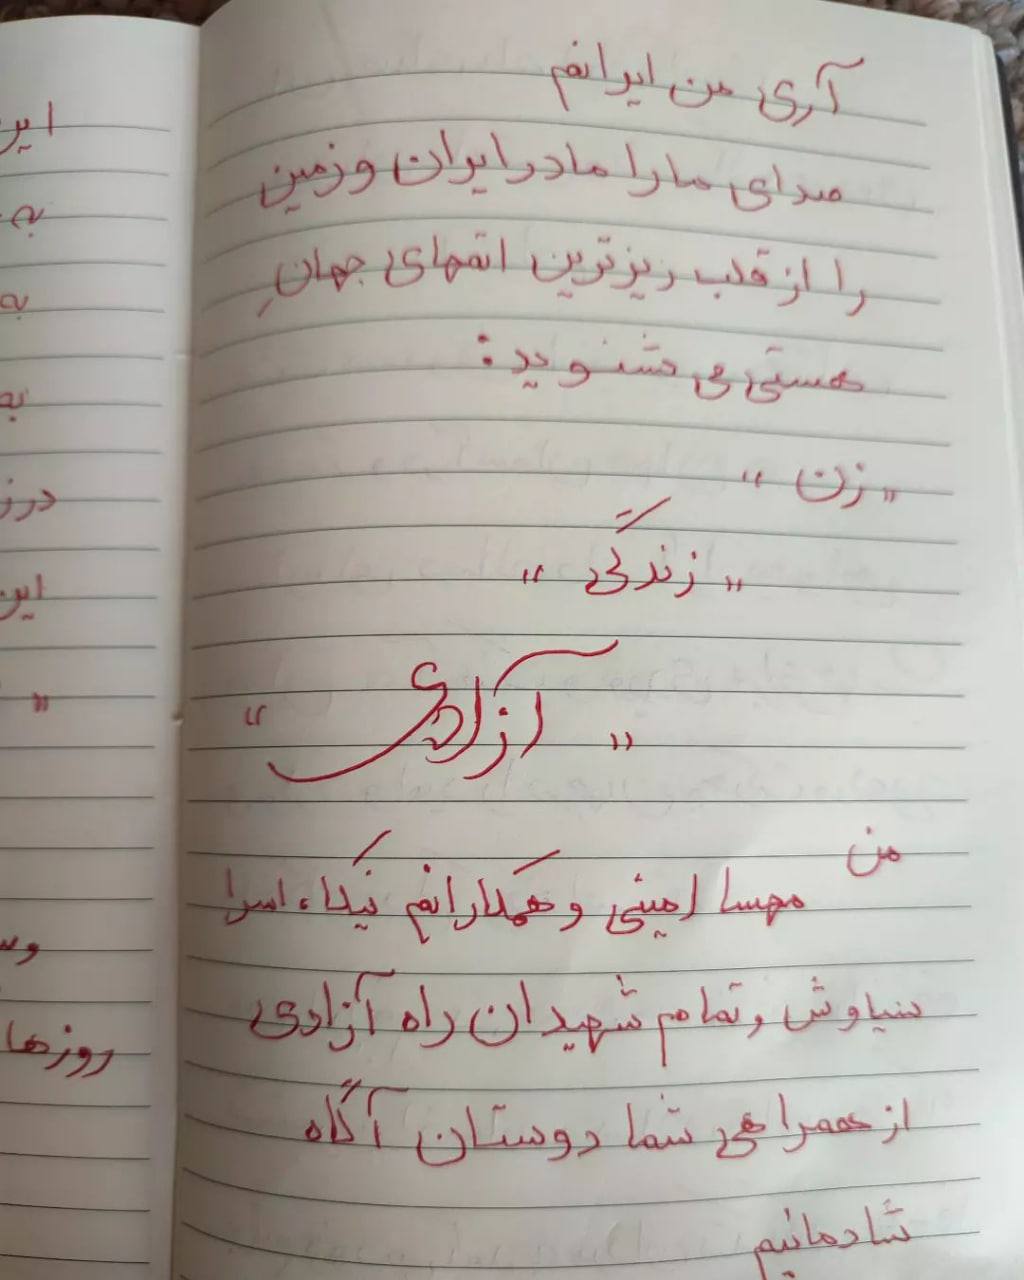 آری من ایرانم
صدای ما را مادر ایران و زمین
را از قلب ریزترین اتمهای جهانِ
هستی می شنوید:
"زن"
"زندگی"
"آزادی"
من
مهسا امینی و همکارانم نیکا، اسرا
سیاوش و تمام شهیدان راه آزادی
از همراهی شما دوستان آگاه
شادمانیم
این
به
به
به
این
"
روزها